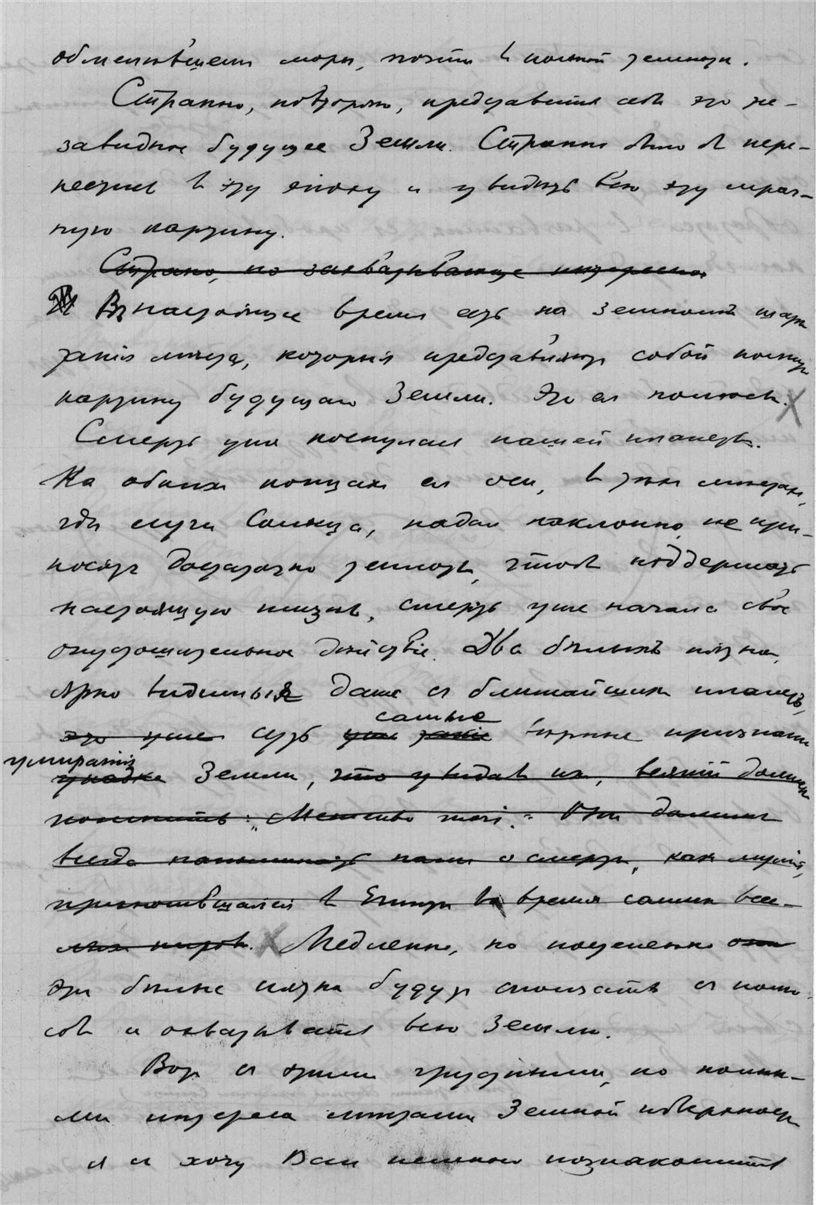 обмелѣвшемъ морѣ, почти въ полной темнотѣ.
Странно, повторяю, представить себѣ это не-
завидное будущее Земли. Странно было бы пере-
нестись въ эту эпоху и увидѣть всю эту мрач-
ную картину.
Странно, но захватывающе интересно
Въ настоящее время есть на земномъ шарѣ
такія мѣста, которыя представляютъ собой полную
картину будущаго Земли. Это ея полюса.
Смерть уже коснулась нашей планеты.
На обоихъ концахъ ея оси, въ тѣхъ мѣстахъ,
гдѣ лучи Солнца, падая наклонно, не при-
носятъ достаточно теплоты, чтобъ поддержать
настоящую жизнь, смерть уже начала свое
опустошительное дѣйствіе. Два бѣлыхъ пятна,
ярко видимыя даже съ ближайшихъ планетъ,
самые
это уже суть уже такіе вѣрные признаки
умиранія
упадка Земли, что увидавъ ихъ, всякій долженъ
вспомнить: „Memento mori“. Они должны
всегда напоминать намъ о смерти, какъ мумія,
приносившаяся въ Египтѣ во время самыхъ весе-
лыхъ пировъ. Медленно, но постепенно они
эти бѣлые пятна будутъ сползать съ полю-
совъ и охватывать всю Землю.
Вотъ съ этими грустными, но полны-
ми интереса мѣстами Земной поверхности
я и хочу Васъ немного познакомить